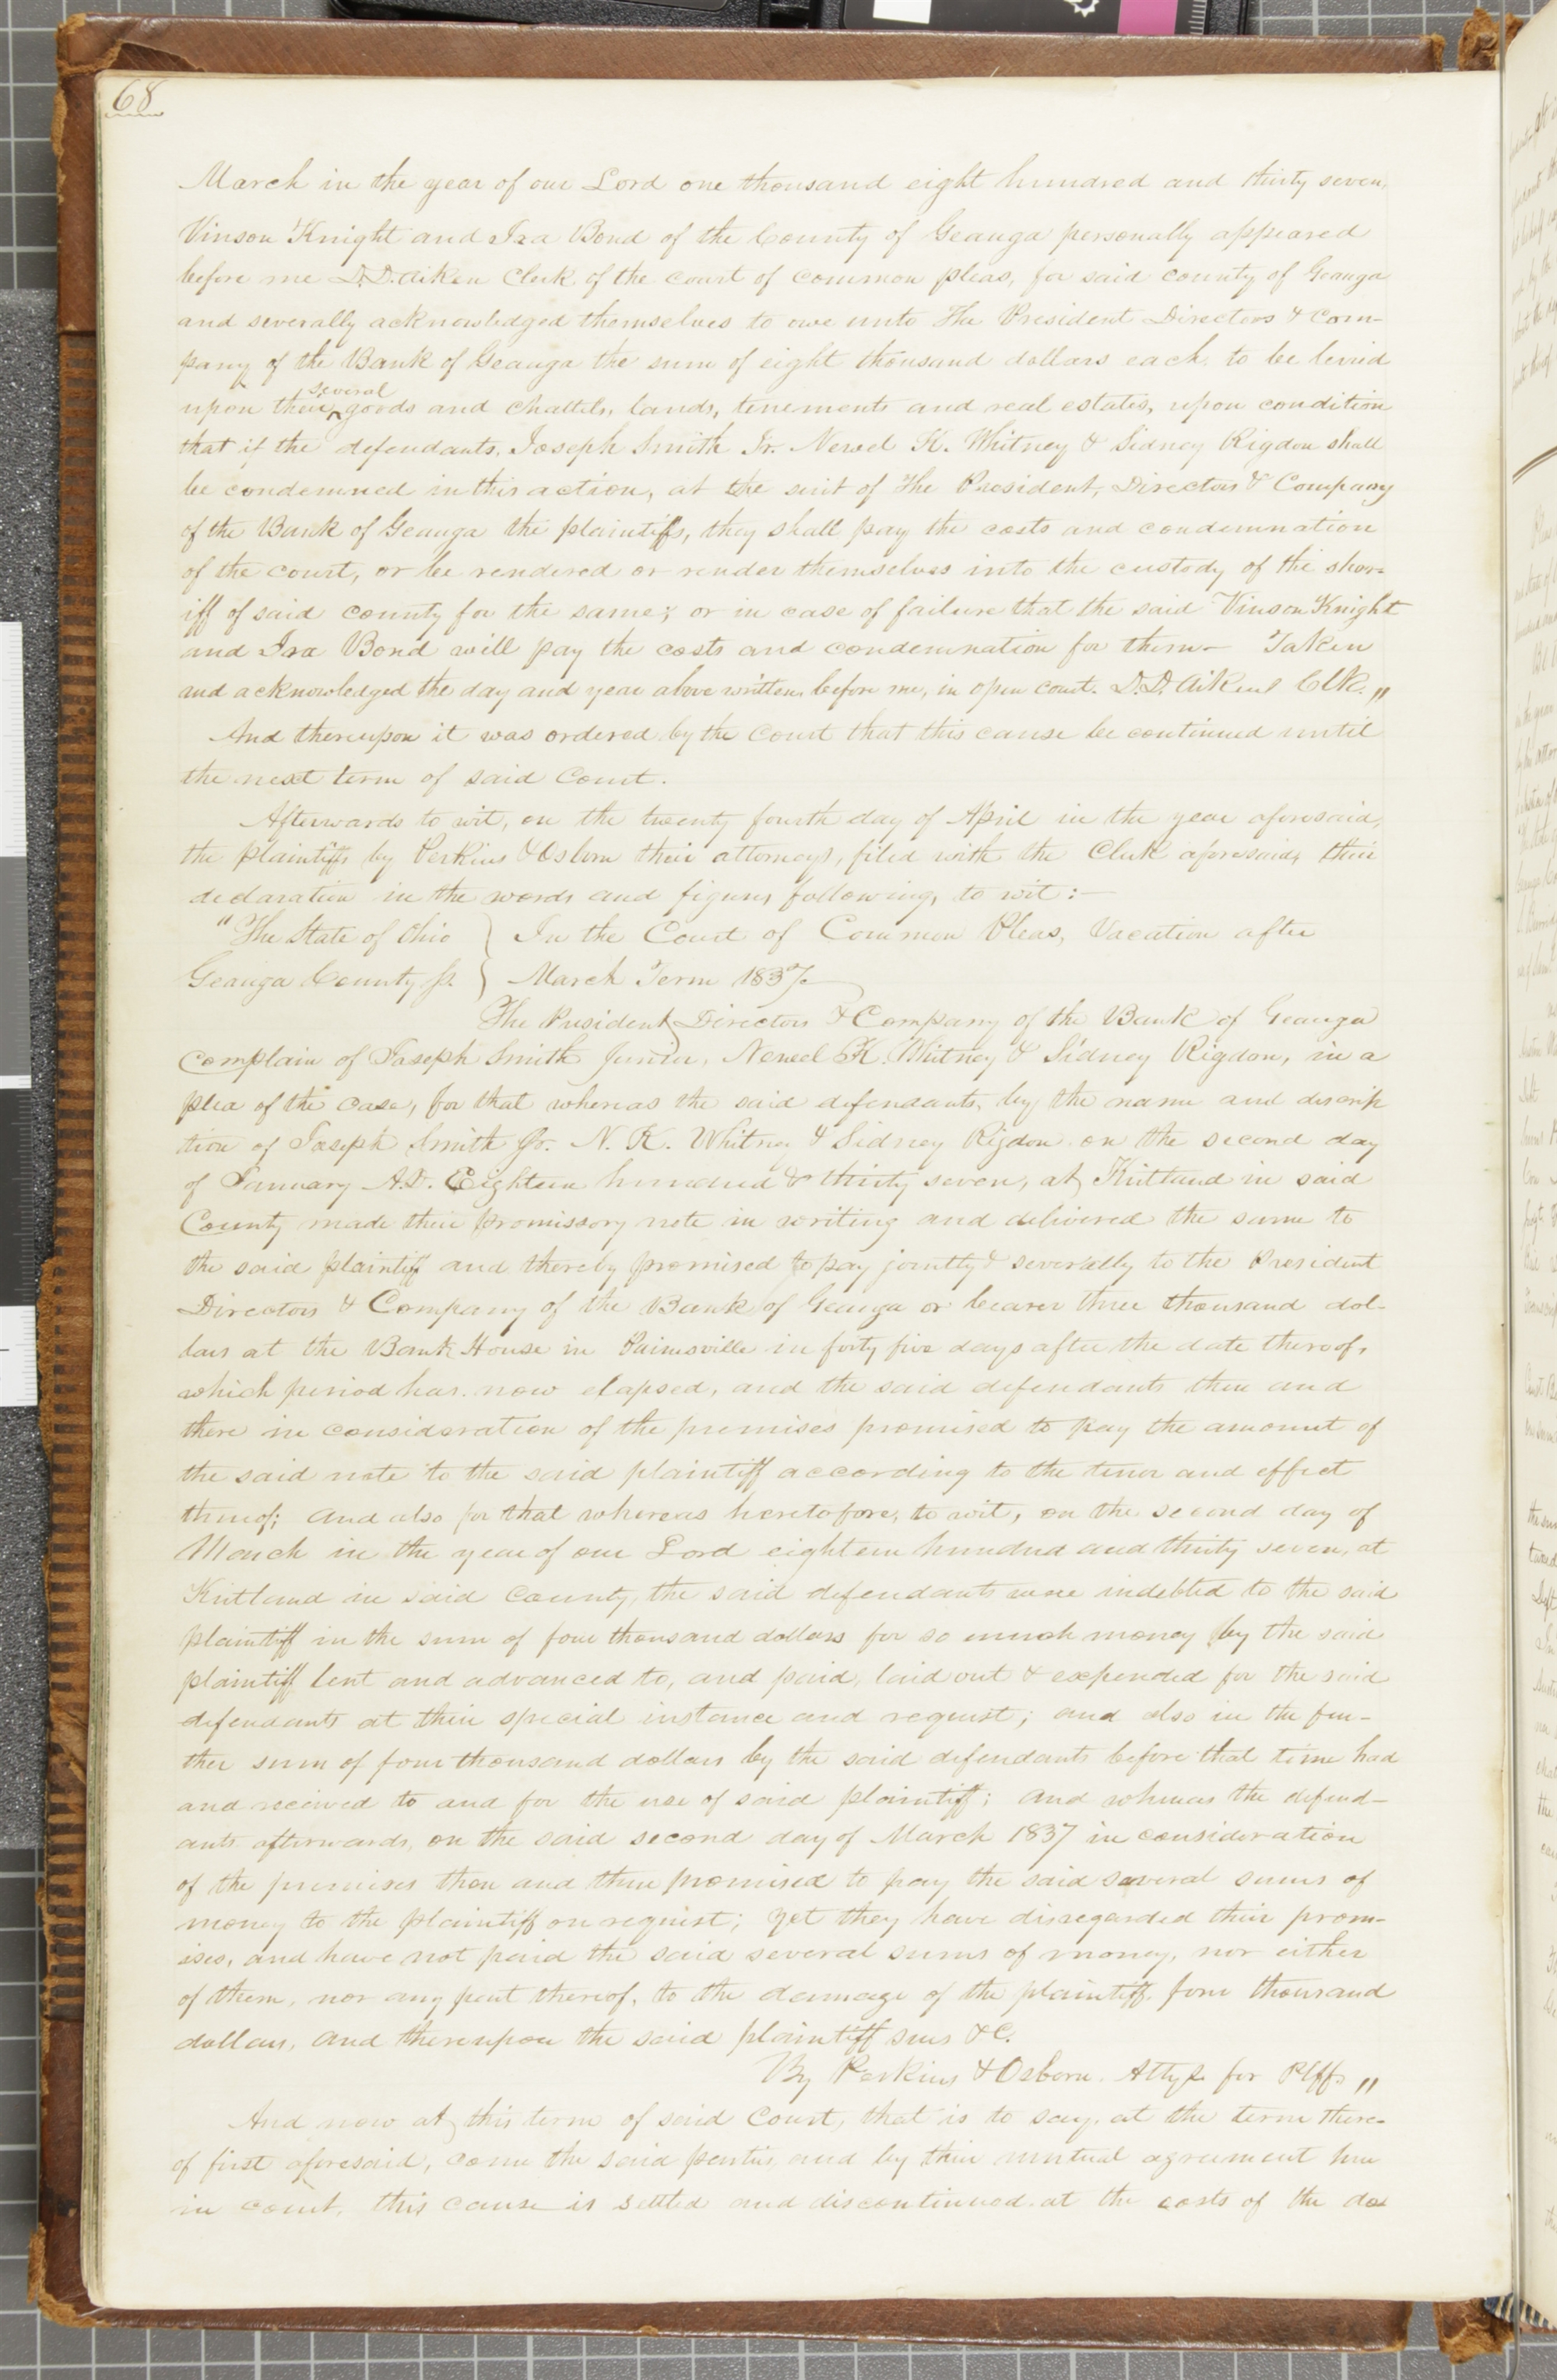 68
March in the year of our Lord one thousand eight hundred and thirty seven,
Vinson Knight and Ira Bond of the County of Geauga personally appeared
before me D.D. Aiken Clerk of the court of common pleas, for said county of Geauga
and severally acknowledged themselves to owe unto The President Directors & Com-
pany of the Bank of Geauga the sum of eight thousand dollars each to be levied
upon their several goods and chattels, lands, tenements and real estates, upon condition
that if the defendants, Joseph Smith Jr. Newel K. Whitney & Sidney Rigdon shall
be condemned in this action, at the suit of The President, Directors & Company
of the Bank of Geauga the plaintiffs, they shall pay the costs and condemnation
of the court, or be rendered or render themselves into the custody of the sher-
iff of said county for the same; or in case of failure that the said Vinson Knight
and Ira Bond will pay the costs and condemnation for them— Taken
and acknowledged the day and year above written, before me, in open court. D.D. Aiken Clk."
And thereupon it was ordered by the Court that this cause be continued until
the next term of said Court.
Afterwards to wit, on the twenty fourth day of April in the year aforesaid,
the plaintiffs by Perkins & Osborn their attorneys, filed with the Clerk aforesaid, their
declaration in the words and figures following, to wit:—
"The State of Ohio } In the Court of Common Pleas, Vacation after
Geauga County ss. } March Term 1837.
The President Directors & Company of the Bank of Geauga
complain of Joseph Smith Junior, Newel K. Whitney & Sidney Rigdon, in a
plea of the case, for that whereas the said defendants, by the name and descrip
tion of Joseph Smith Jr. N. K. Whitney & Sidney Rigdon on the second day
of January A.D. Eighteen hundred & thirty seven, at Kirtland in said
County made their promissory note in writing and delivered the same to
the said plaintiff and thereby promised to pay jointly & severally to the President
Directors & Company of the Bank of Geauga or bearer three thousand dol-
lars at the Bank House in Painesville in forty five days after the date thereof,
which period has now elapsed, and the said defendants then and
there in consideration of the premises promised to pay the amount of
the said note to the said plaintiff according to the tenor and effect
thereof; and also for that whereas heretofore, to wit, on the second day of
March in the year of our Lord eighteen hundred and thirty seven, at
Kirtland in said County, the said defendants were indebted to the said
plaintiff in the sum of four thousand dollars for so much money by the said
plaintiff lent and advanced to, and paid, laid out & expended for the said
defendants at their special instance and request; and also in the fur-
ther sum of four thousand dollars by the said defendants before that time had
and received to and for the use of said plaintiff; and whereas the defend-
ants afterwards, on the said second day of March 1837 in consideration
of the premises then and there promised to pay the said several sums of
money to the plaintiff on request; yet they have disregarded their prom-
ises, and have not paid the said several sums of money, nor either
of them, nor any part thereof, to the damage of the plaintiff four thousand
dollars, and thereupon the said plaintiff sues &c.
By Perkins & Osborn. Attys for Plffs"
And now at this term of said Court, that is to say, at the term there-
of first aforesaid, come the said parties and by their mutual agreement here
in court, this cause is settled and discontinued at the costs of the de